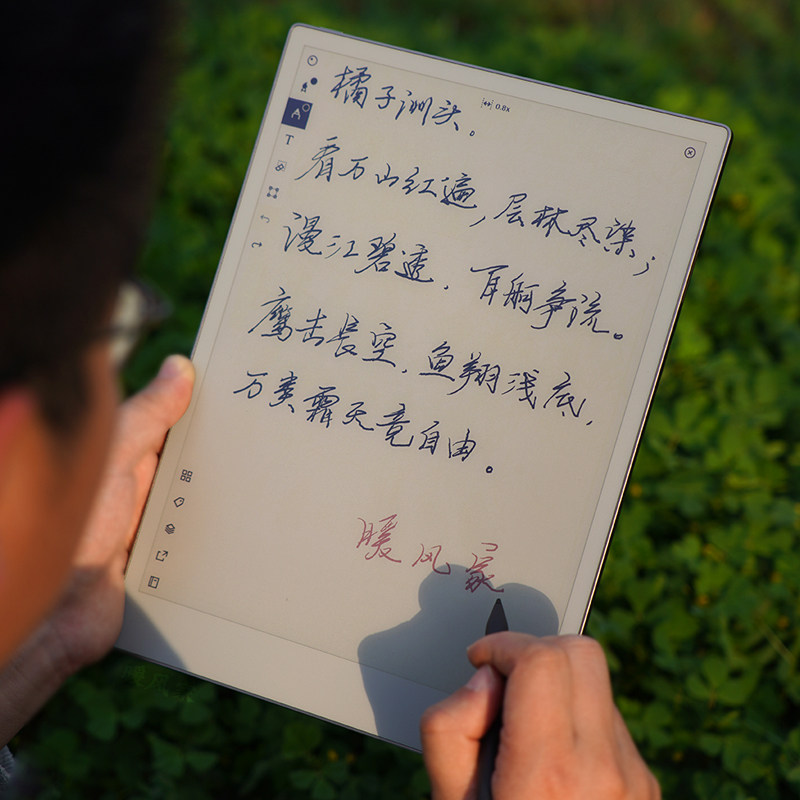 0.8x
橘子洲头。
看万山红遍,层林尽染;
漫江碧透,百舸争流。
鹰击長空,鱼翔浅底,
万类霜天竟自由。
暖风家